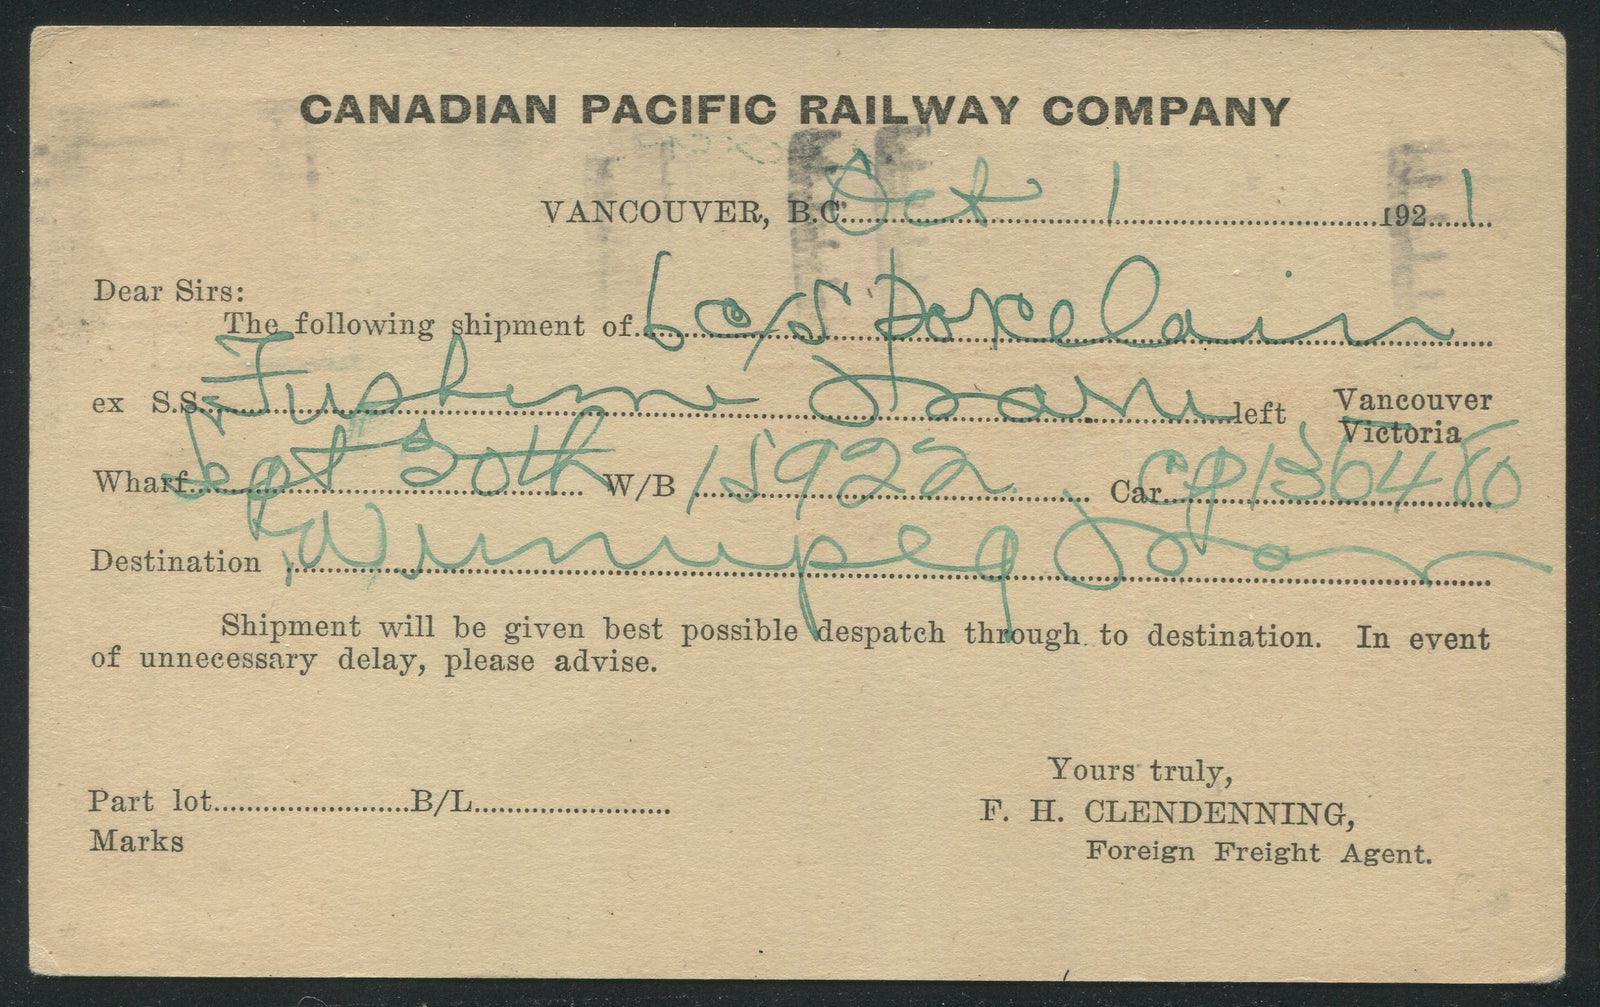 CANADIAN PACIFIC RAILWAY COMPANY
VANCOUVER, B.C. Oct 1 1921
Dear Sirs:
The following shipment of 6 c/s Porcelain
ex S.S. Fushimi Maru left Vancouver
Victoria
Wharf Sept 30th W/B 15922 Car CP 136480
Destination Winnipeg Man
Shipment will be given best possible despatch through to destination. In event
of unnecessary delay, please advise.
Yours truly,
Part lot B/L F. H. CLENDENNING,
Marks Foreign Freight Agent.